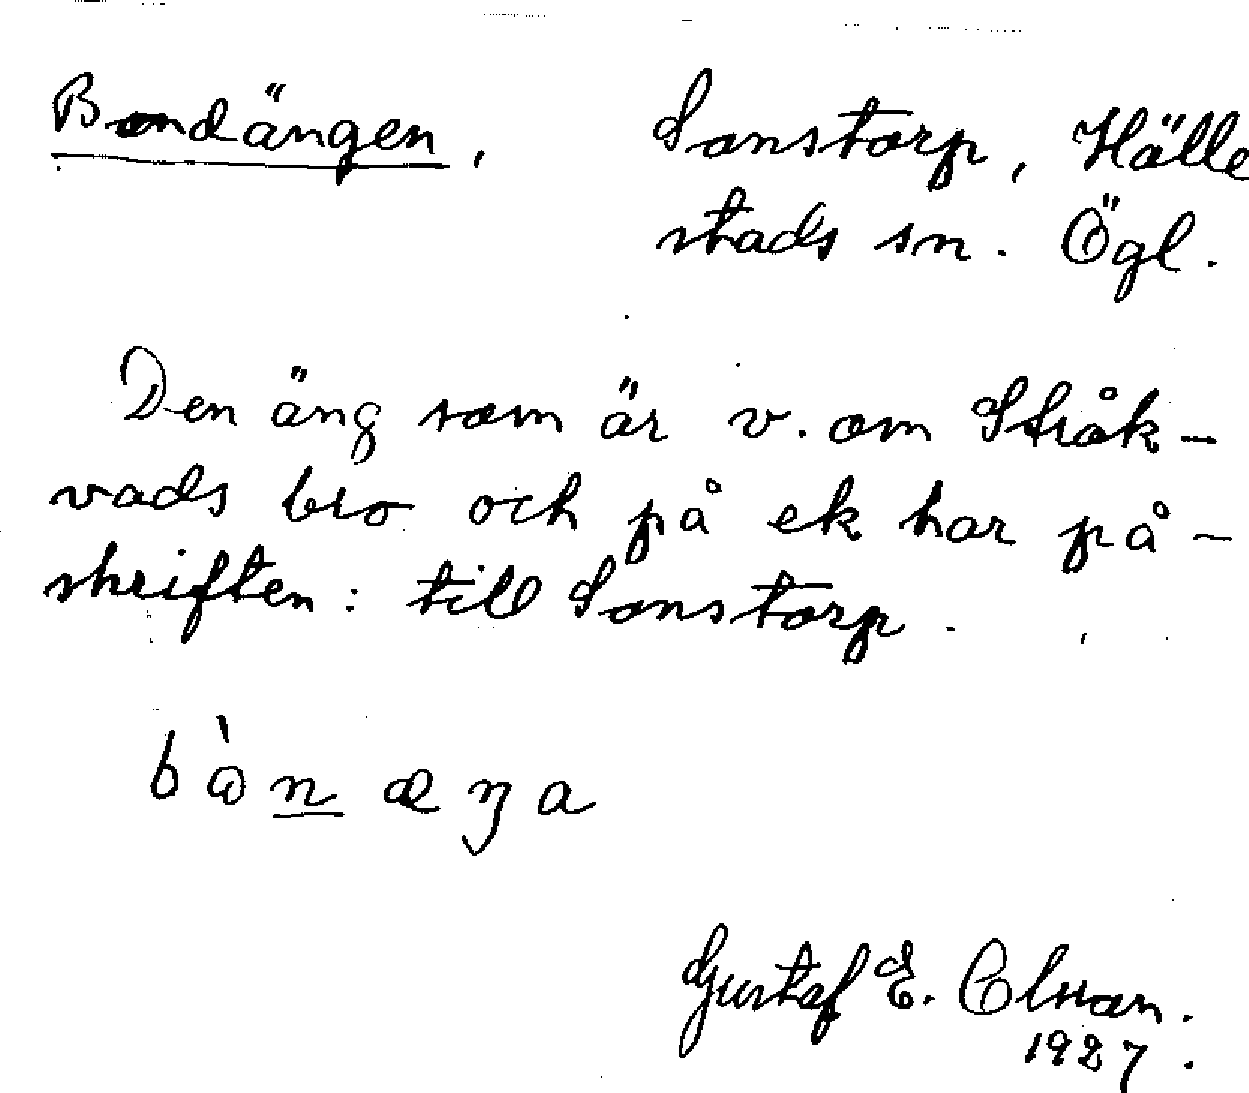 Bondängen, Sonstorp, Hälle
stads sn. Ögl.
Den äng som är v. om Stråk-
vads bro och på ek har på-
skriften: till Sonstorp.
Gustaf E. Olsson.
1927.